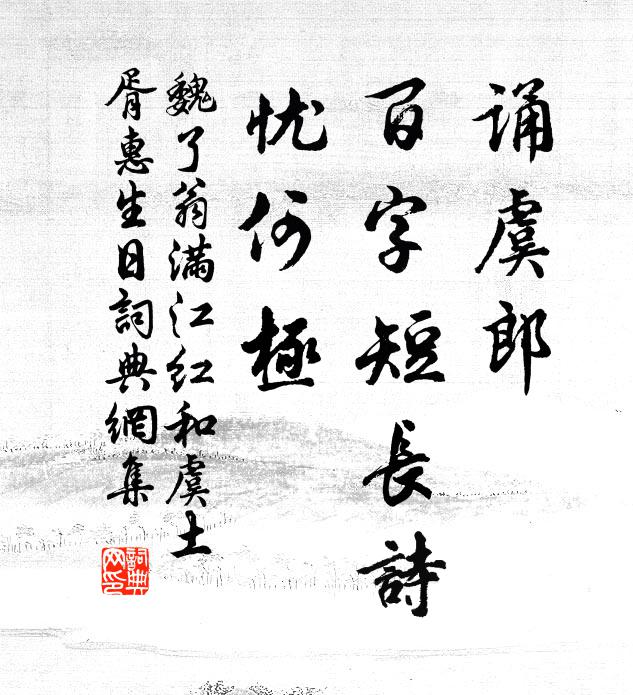 诵虞郎
百字短長詩
忧何極
魏了翁滿江红和虞士
胥惠生日詞典網集
詞典网印